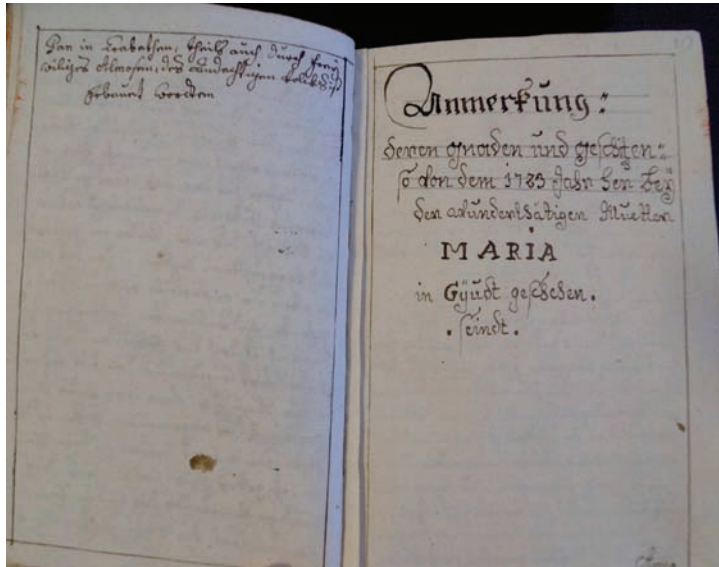 in Crabathen, theils auch durch frey
williges Almosen, des andächtigen Volkhs
gebauet worden
Anmerkung:
deren gnaden und geschiten:
so von dem 1723 Jahr her beÿ
der wunderthätigen Muetter
MARIA
in Gÿüdt geschehen.
. seindt.